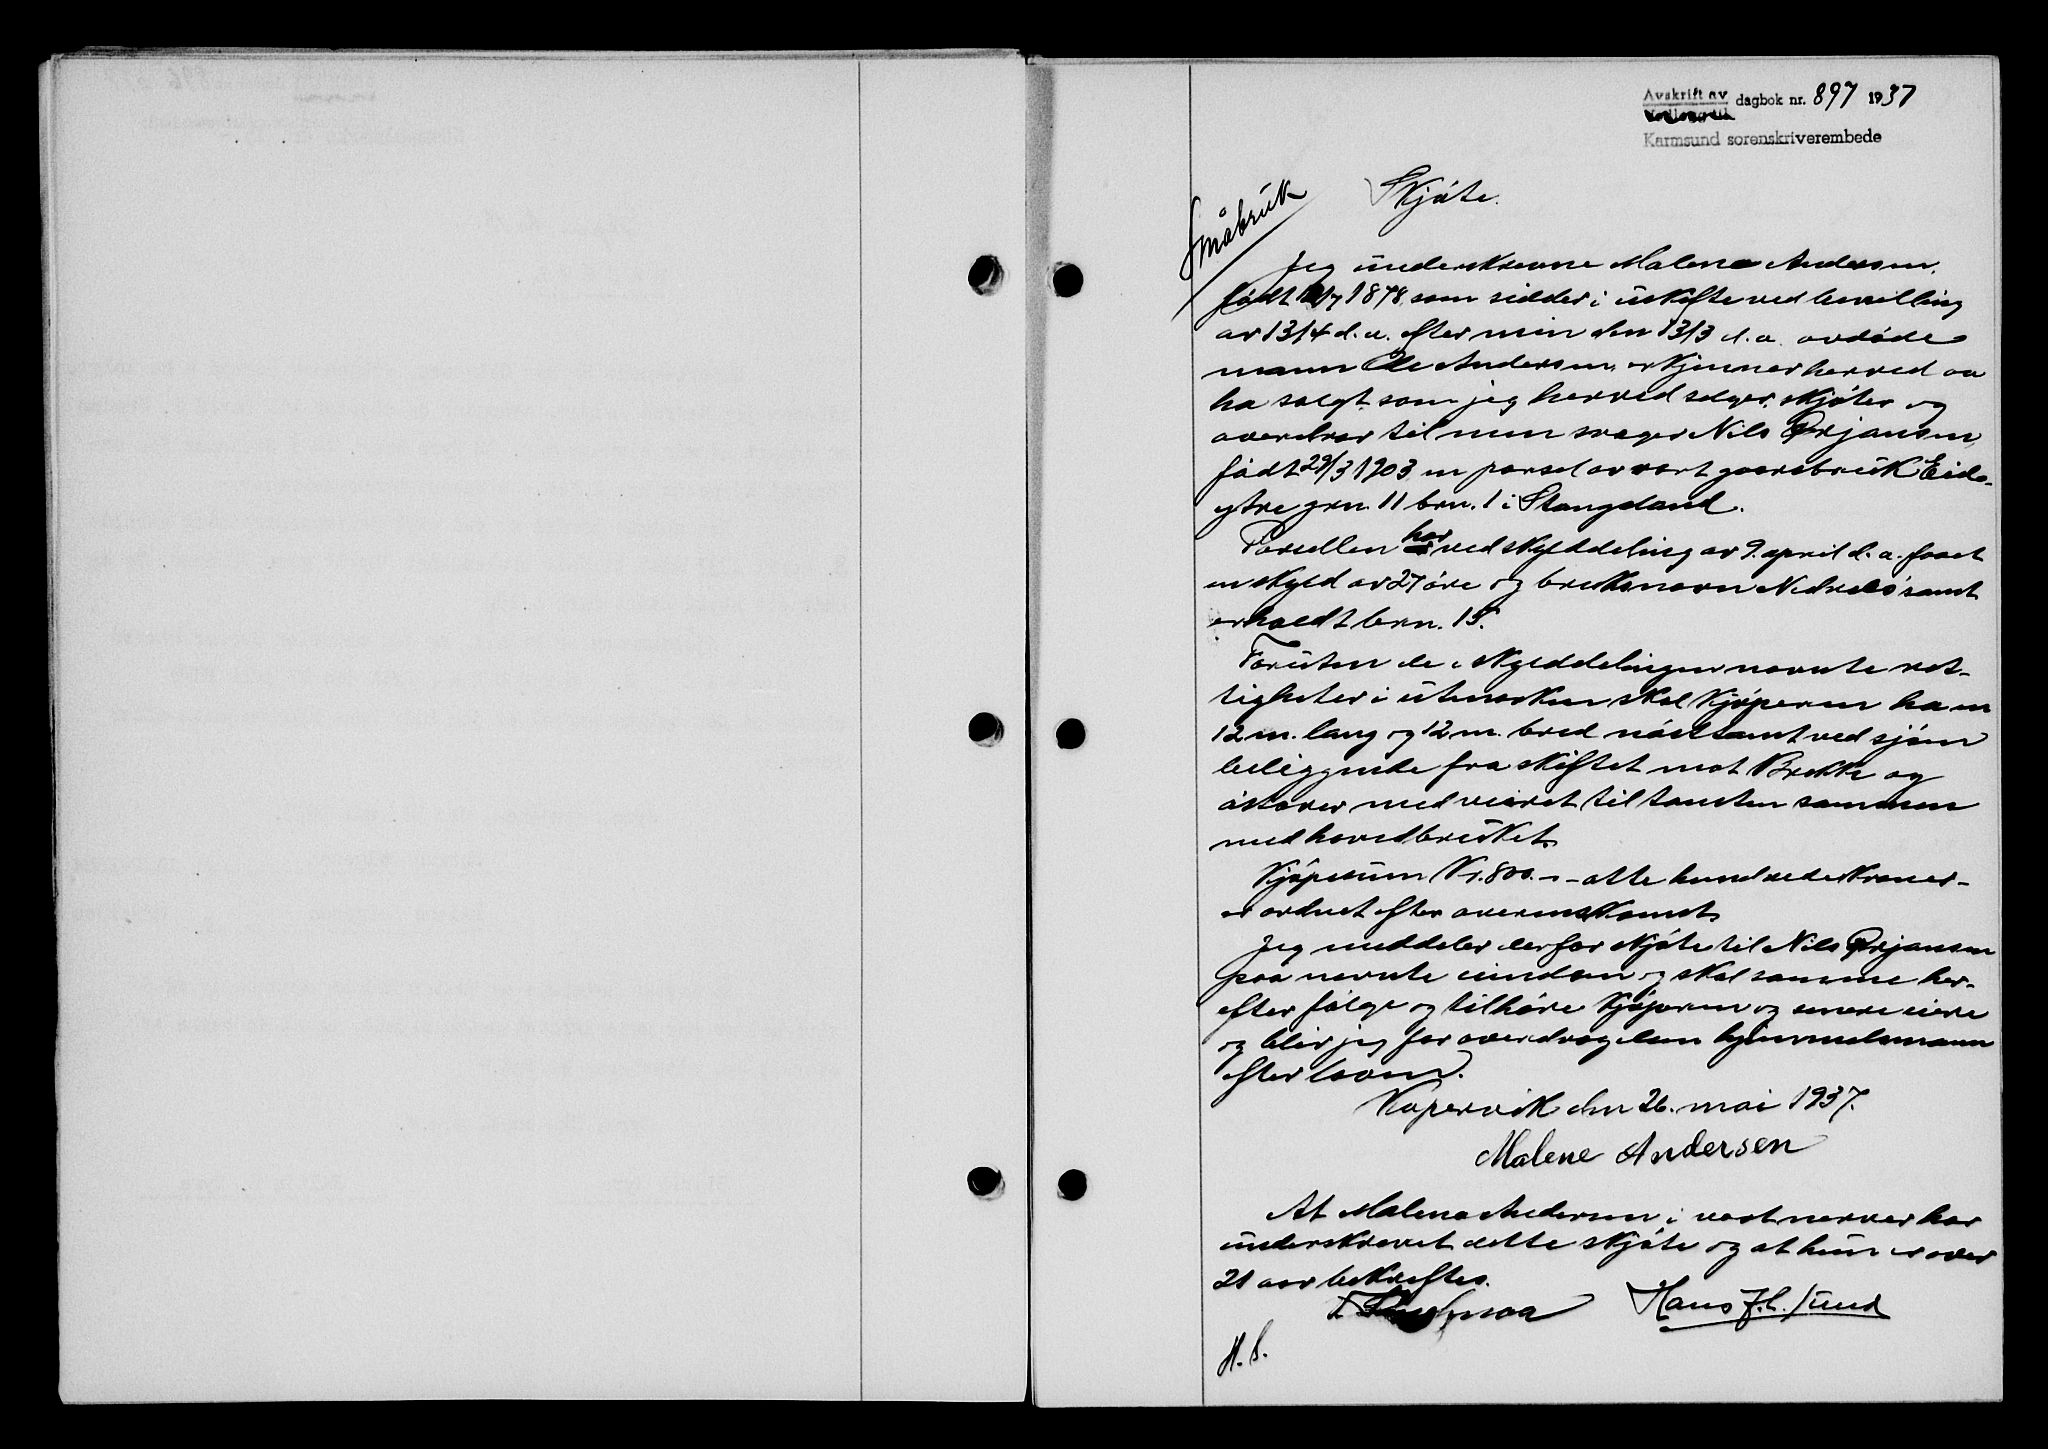 Avskrift av dagbok nr. 897 1937
Karmsund sorenskriverembede
Småbruk
Skjøte.
Jeg underskrevne Malene Andersen,
født /7 1878, som sidder i uskifte ved bevilling
av 13/4 d.a. efter min den 13/3 d.a. avdøde
mann Ole Andersen, erkjenner herved aa
ha solgt som jeg herved selger, skjøter og
overdrar til min svoger Nils Ørjansen,
født 29/3 1903 en parsel av vort gaardsbruk Eide
ytre grn. 11 brn. 1 i Stangeland.
Parsellen har ved skylddeling av 9. april d.a. faaet
en skyld av 27 øre og bruksnavn samt
erholdt brn. 15.
Foruten de i skylddelingen nevnte ret-
tigheter i utmarken skal kjøperen ha en
12 m. lang og 12 m. bred nøsttomt ved sjøen
beliggende fra skiftet mot Brekke og
østover med veiret til tomten sammen
med hovedbruket.
Kjøpesum Kr. 800.- - otte hundrede kroner -
er ordnet efter overenskomst.
Jeg meddeler derfor skjøte til Nils Ørjansen
paa nevnte eiendom og skal samme her-
efter følge og tilhøre kjøperen og senere eiere
og blir jeg for overdragelsen hjemmelsmann
efter loven.
Kopervik den 26. mai 1937.
Malene Andersen
At Malene Andersen i vort nerver har
underskrevet dette skjøte og at hun er over
21 aar bekreftes.
Hans J. C. Sund
H. S.